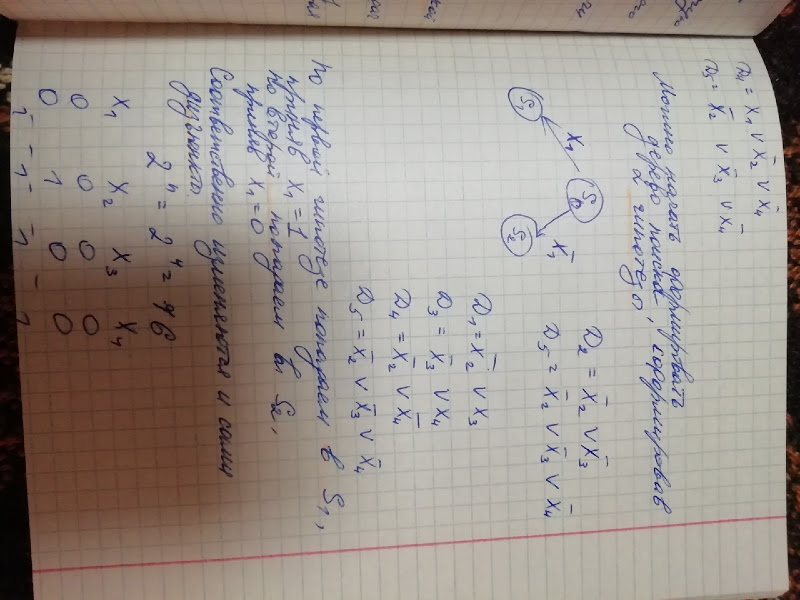 D₄ = x₁ ∨ x̄₂ ∨ x̄₄
D₅ = x̄₂ ∨ x̄₃ ∨ x̄₄
Можно начать формировать
дерево поиска, сформировав
2 гипотезо
S₀
x₁
x̄₁
S₁
S₂
D₂ = x̄₂ ∨ x̄₃
D₅ = x̄₂ ∨ x̄₃ ∨ x̄₄
D₁ = x̄₂ ∨ x₃
D₃ = x̄₃ ∨ x₄
D₄ = x̄₂ ∨ x̄₄
D₅ = x̄₂ ∨ x̄₃ ∨ x̄₄
По первой гипотезе попадаем в S₁,
приняв x₁ = 1
по второй попадаем в S₂,
приняв x₁ = 0
Соответственно изменяются и сами
дизъюнкты
2ⁿ = 2⁴ = 16
x₁ x₂ x₃ x₄
0 0 0 0
0 1 0 0
1 - 1 - 1 - 1